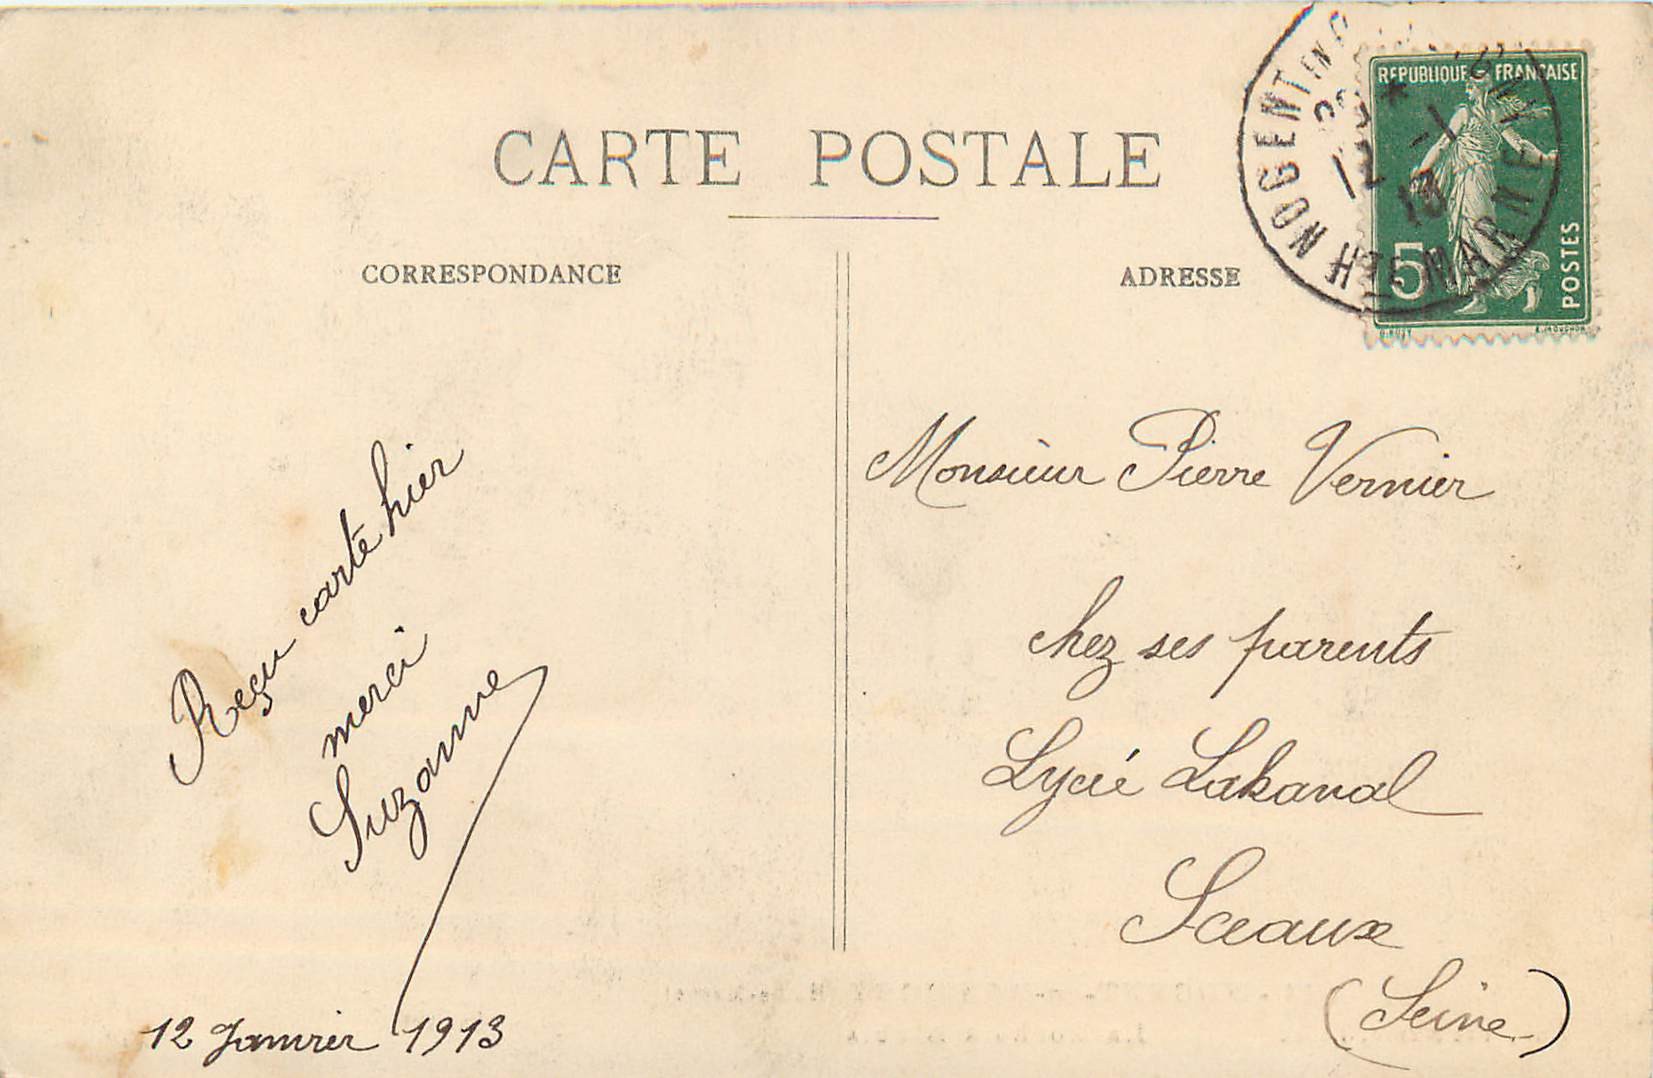 CARTE POSTALE
CORRESPONDANCE
ADRESSE
RÉPUBLIQUE FRANÇAISE
5
POSTES
NOGENT EN
12 -1
13
HTE MARNE
Reçu carte hier
merci
Suzanne
12 Janvier 1913
Monsieur Pierre Vernier
chez ses parents
Lycée Lakanal
Sceaux
(Seine)